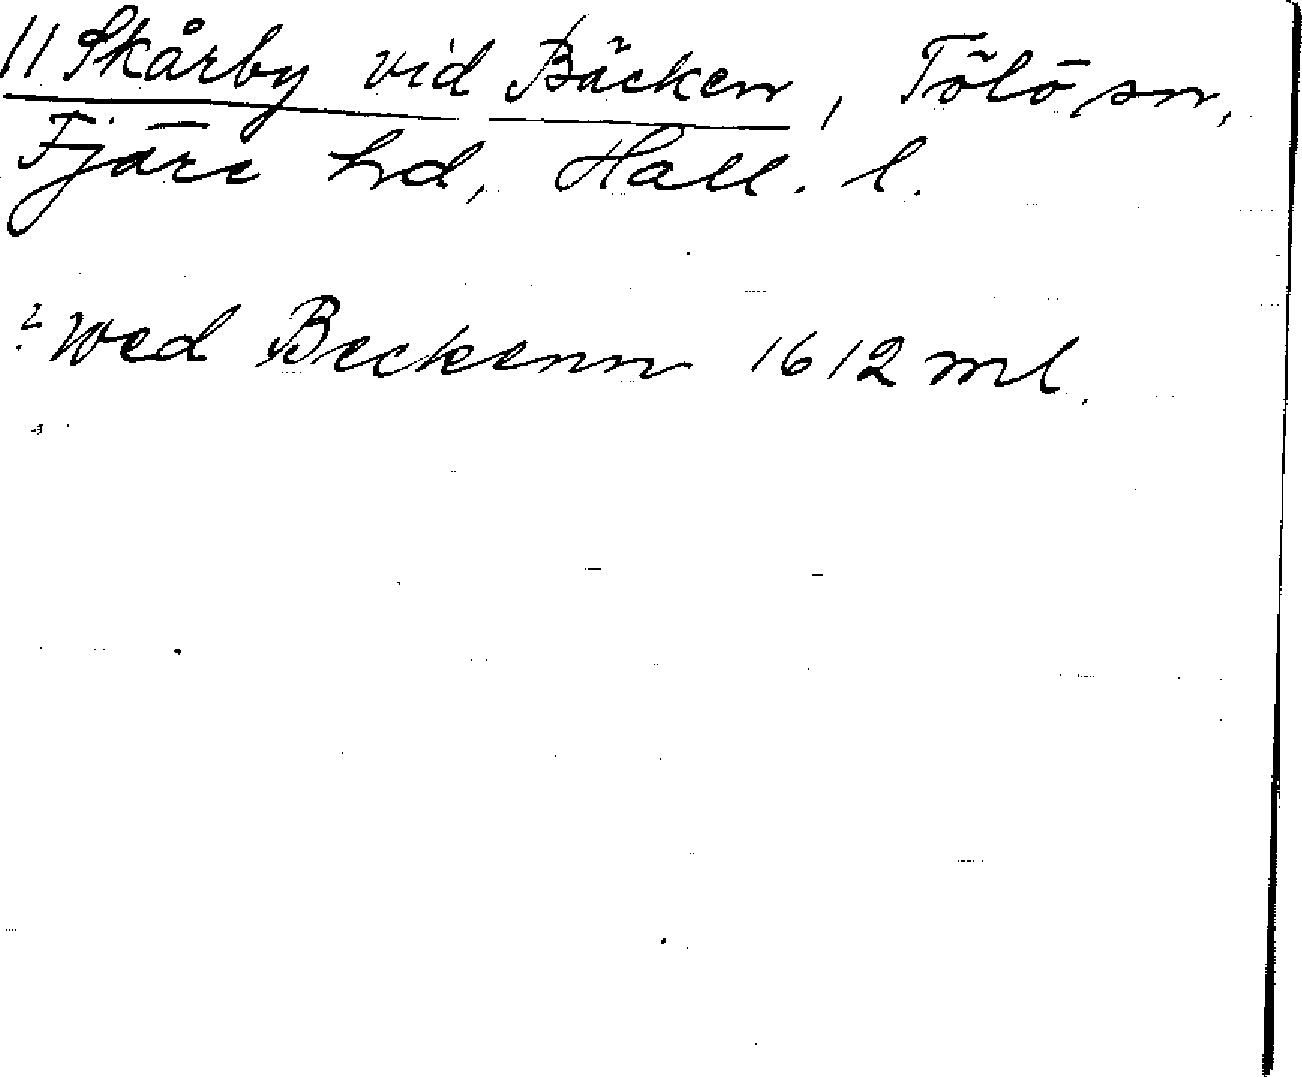 11 Skårby vid Bäcken, Tölö sn,
Fjäre hd, Hall. l.
? Wed Beckenn 1612 ml.